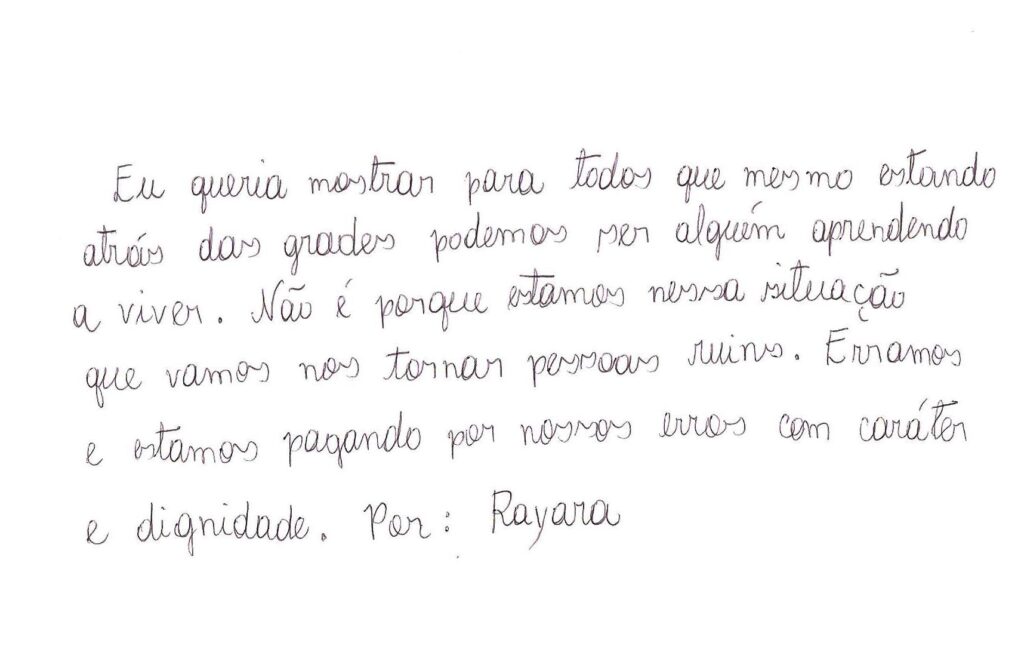 Eu queria mostrar para todos que mesmo estando
atrás das grades podemos ser alguém aprendendo
a viver. Não é porque estamos nessa situação
que vamos nos tornar pessoas ruins. Erramos
e estamos pagando por nossos erros com caráter
e dignidade. Por: Rayara